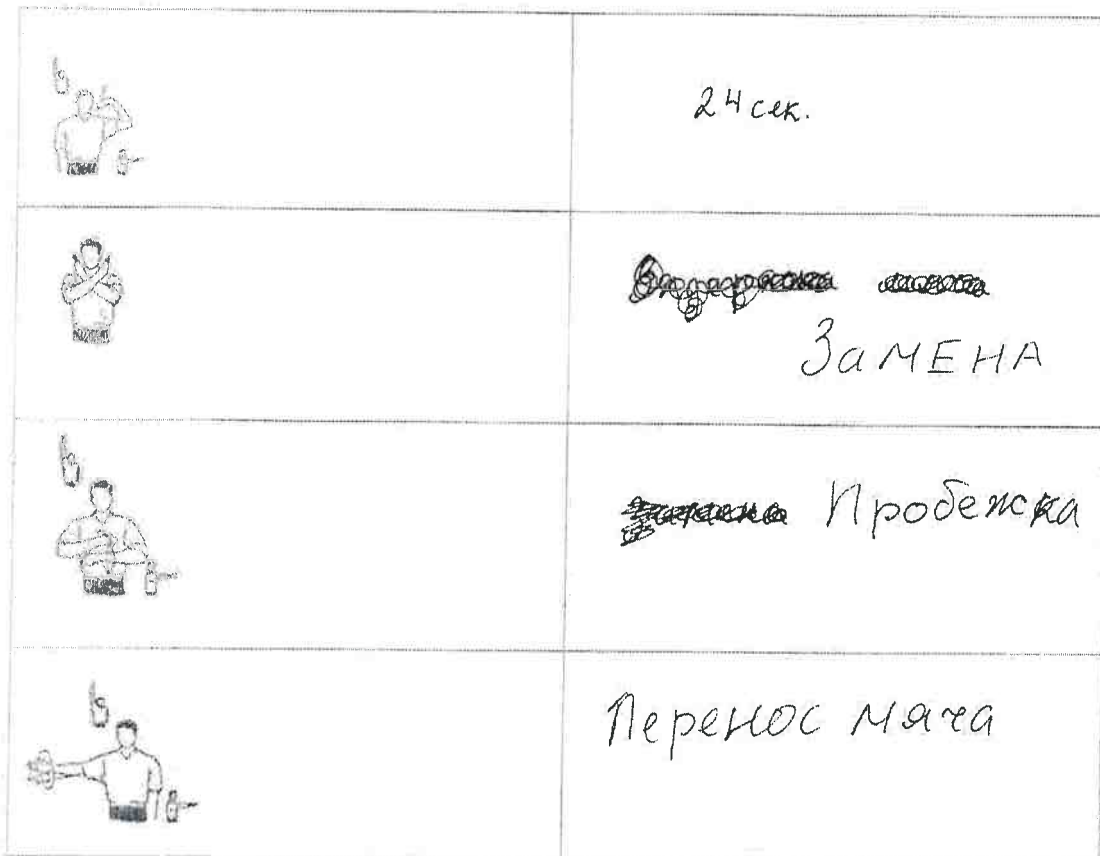 24 сек.
Замена
Пробежка
Перенос мяча